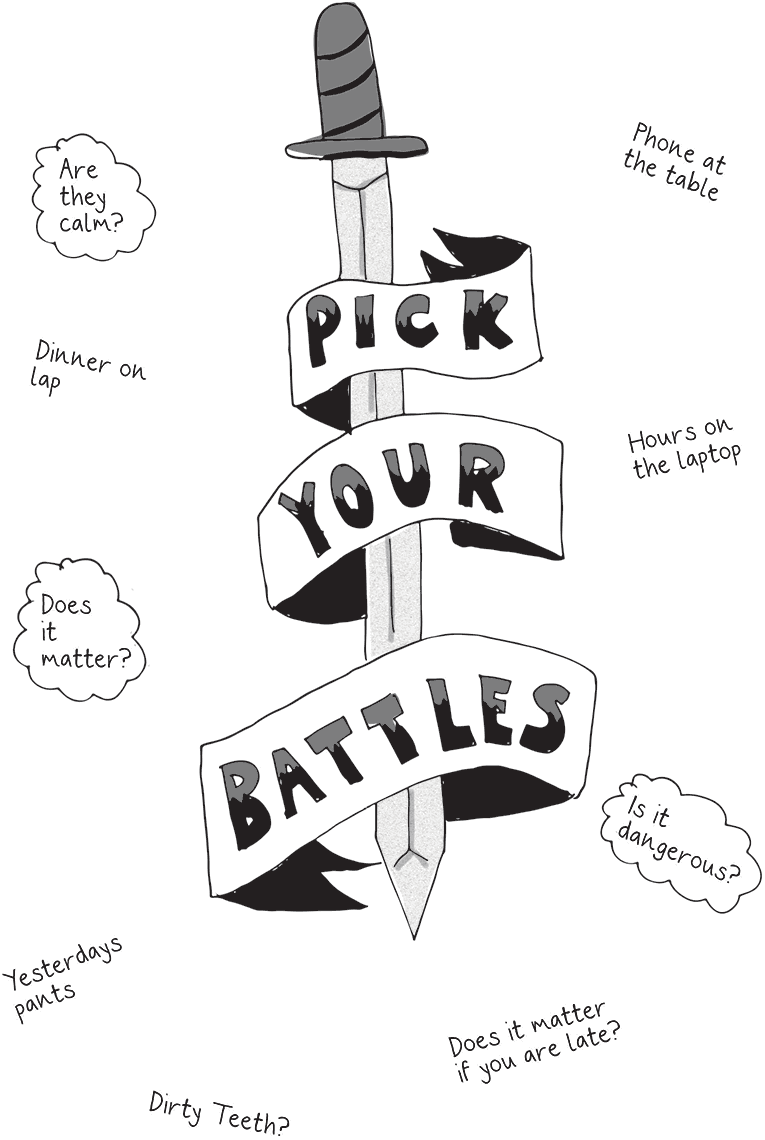 Phone at
the table
Are
they
calm?
PICK
Dinner on
lap
Hours on
the laptop
YOUR
Does
it
matter?
BATTLES
Is it
dangerous?
Yesterdays
pants
Does it matter
if you are late?
Dirty Teeth?